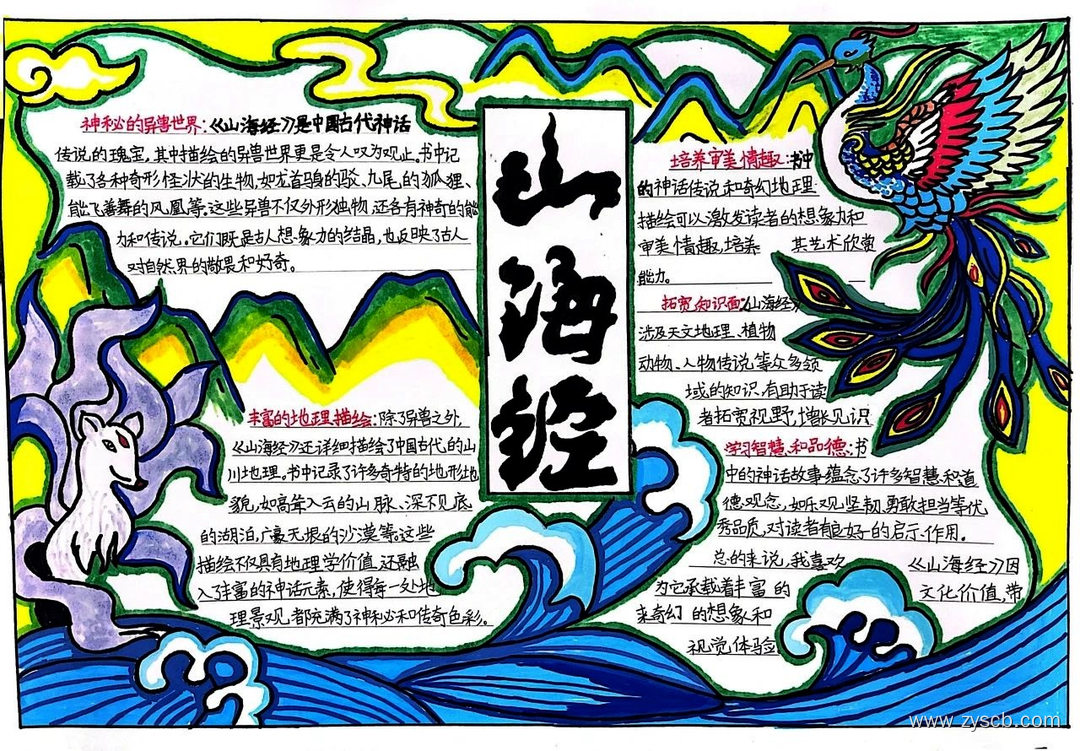 神秘的异兽世界:《山海经》是中国古代神话
传说的瑰宝,其中描绘的异兽世界更是令人叹为观止。书中记
载了各种奇形怪状的生物,如龙首马身的驳、九尾的狐狸、
能飞善舞的凤凰等。这些异兽不仅外形独物,还各有神奇的能
力和传说。它们既是古人想象力的结晶,也反映了古人
对自然界的敬畏和好奇。
丰富的地理描绘:除了异兽之外,
《山海经》还详细描绘了中国古代的山
川地理。书中记录了许多奇特的地形地
貌,如高耸入云的山脉、深不见底
的湖泊,广袤无垠的沙漠等。这些
描绘不仅具有地理学价值,还融
入了丰富的神话元素,使得每一处地
理景观都充满了神秘和传奇色彩。
山海经
培养审美情趣:书中
的神话传说和奇幻地理
描绘可以激发读者的想象力和
审美情趣,培养 其艺术欣赏
能力。
拓宽知识面:《山海经》
涉及天文地理、植物
动物、人物传说等众多领
域的知识,有助于读
者拓宽视野,增长见识
学习智慧和品德:书
中的神话故事蕴念了许多智慧和道
德观念,如乐观、坚韧、勇敢担当等优
秀品质,对读者有良好的启示作用。
总的来说,我喜欢 《山海经》因
为它承载着丰富的 文化价值,带
来奇幻的想象和
视觉体验
www.zyscb.com